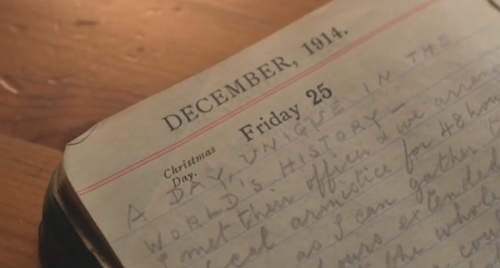 DECEMBER, 1914.
Friday 25
Christmas
Day.
A DAY UNIQUE IN THE
WORLD'S HISTORY -
I met them officers & we
local armistice for 48 hours
as I can gather
ours extended
the whole